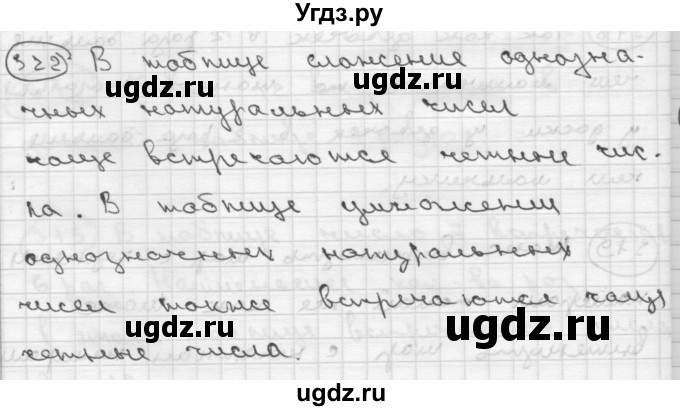 Угдз.ру
329 В таблице сложения однозна-
чных натуральных чисел
чаще встречаются четные чис-
ла. В таблице умножения
однозначных натуральных
чисел также встречаются чаще
четные числа.
ugdz.ru ugdz.ru
ugdz.ru ugdz.ru
ugdz.ru ugdz.ru
ugdz.ru